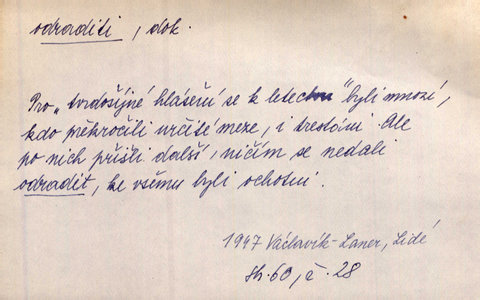 odraditi, dok.
Pro „tvrdošíjné hlášení se k letectvu" byli mnozí,
kdo překročili určité meze, i trestáni. Ale
po nich přišli další, ničím se nedali
odradit, ke všemu byli ochotni.
1947 Václavík-Laner, Lidé
str. 60, č. 28